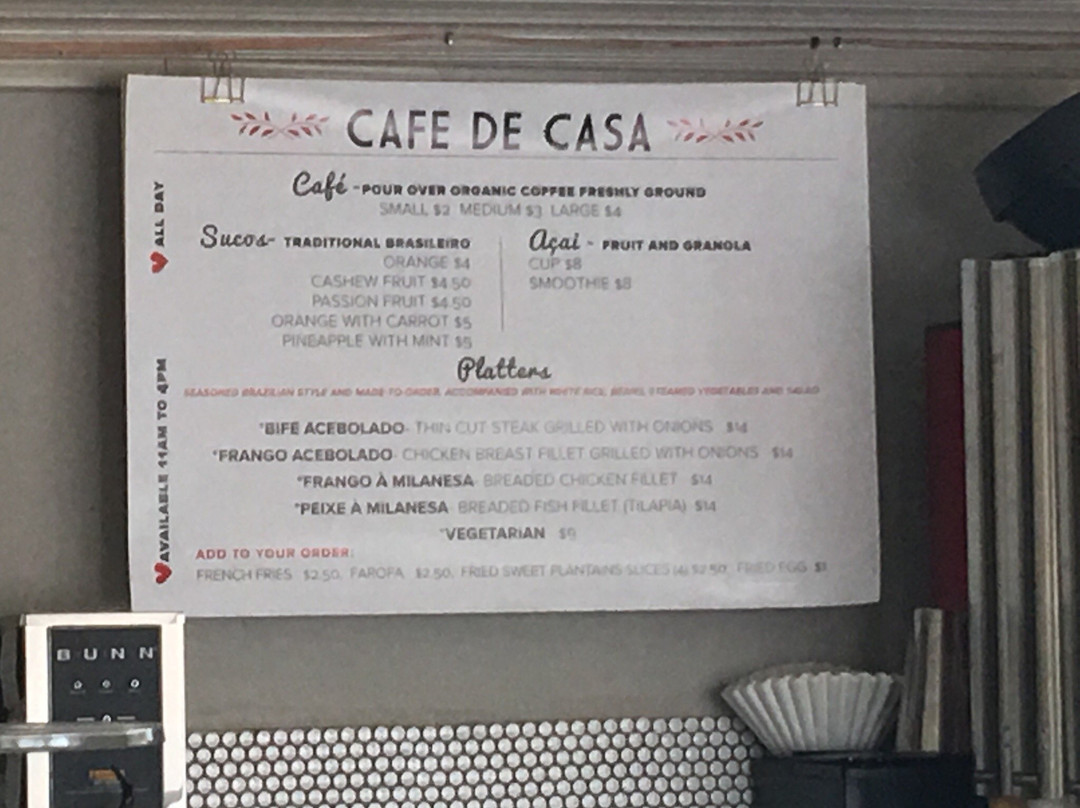 CAFE DE CASA
Café - POUR OVER ORGANIC COFFEE FRESHLY GROUND
SMALL $2 MEDIUM $3 LARGE $4
ALL DAY
Sucos- TRADITIONAL BRASILEIRO
ORANGE $4
CASHEW FRUIT $4.50
PASSION FRUIT $4.50
ORANGE WITH CARROT $5
PINEAPPLE WITH MINT $5
Açai - FRUIT AND GRANOLA
CUP $8
SMOOTHIE $8
Platters
SEASONED BRAZILIAN STYLE AND MADE-TO-ORDER, ACCOMPANIED WITH WHITE RICE, BEANS, STEAMED VEGETABLES AND SALAD
AVAILABLE 11AM TO 4PM
*BIFE ACEBOLADO- THIN CUT STEAK GRILLED WITH ONIONS $14
*FRANGO ACEBOLADO- CHICKEN BREAST FILLET GRILLED WITH ONIONS $14
*FRANGO À MILANESA- BREADED CHICKEN FILLET $14
*PEIXE À MILANESA- BREADED FISH FILLET (TILAPIA) $14
*VEGETARIAN $9
ADD TO YOUR ORDER:
FRENCH FRIES $2.50, FAROFA $2.50, FRIED SWEET PLANTAINS SLICES (4) $2.50, FRIED EGG $1
BUNN